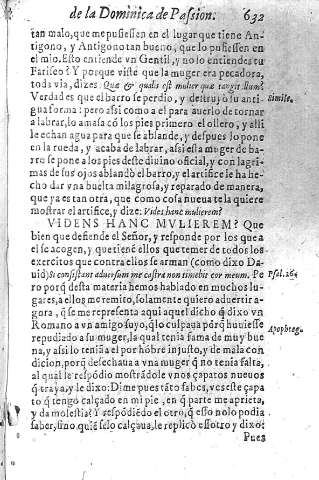 de la Dominica de Passion. 632
tan malo, que me pusiessen en el lugar que tiene An-
tigono, y Antigono tan bueno, que lo pusiessen en
el mio. Esto entiende vn Gentil, y no lo entiendes tu
Fariseo? Y porque viste que la muger era pecadora,
toda via, dizes: Quæ & qualis est mulier quæ tangit illum?
Verdad es que el barro se perdio, y destruyò su anti- Simile.
gua forma: pero assi como a el para auerlo de tornar
a labrar, lo amasa cō los pies primero el ollero, y alli
le echan agua para que se ablande, y despues lo pone
en la rueda, y acaba de labrar, assi esta muger de bar-
ro se pone a los pies deste diuino oficial, y con lagri-
mas de sus ojos ablandò el barro, y el artifice le ha he-
cho dar vna buelta milagrosa, y reparado de manera,
que ya es tan otra, que como cosa nueua te la quiere
mostrar el artifice, y dize: Vides hanc mulierem?
VIDENS HANC MVLIEREM? Que
bien que defiende el Señor, y responde por los que a
el se acogen, y quetiené ellos que temer de todos los
exercitos que contra ellos se arman (como dixo Da
uid) Si consistant aduersum me castra non timebit cor meum. Pe Psal. 26.
ro porq̃ desta materia hemos hablado en muchos lu-
gares, a ellos me remito, solamente quiero aduertir a-
gora, q̃ se me representa aqui aquel dicho q̃ dixo vn
Romano a vn amigo suyo, q̃lo culpaua porq̃ huuiesse Apophteg.
repudiado a su muger, la qual tenia fama de muy bue
na, y assi lo teniā a el por hōbre injusto, y de mala con
dicion, porq̃ desechaua a vna muger q̃ no tenia falta,
al qual le respōdio mostrādole vnos çapatos nueuos
q̃ traya, y le dixo: Dime pues tāto sabes, ves este çapa
to q̃ tengo calçado en mi pie, en q̃ parte me aprieta,
y da molestia? Y respōdiēdo el otro, q̃ esso nolo podia
saber, sino quiē selo calçaua, le replicò essotro y dixo:
Pues